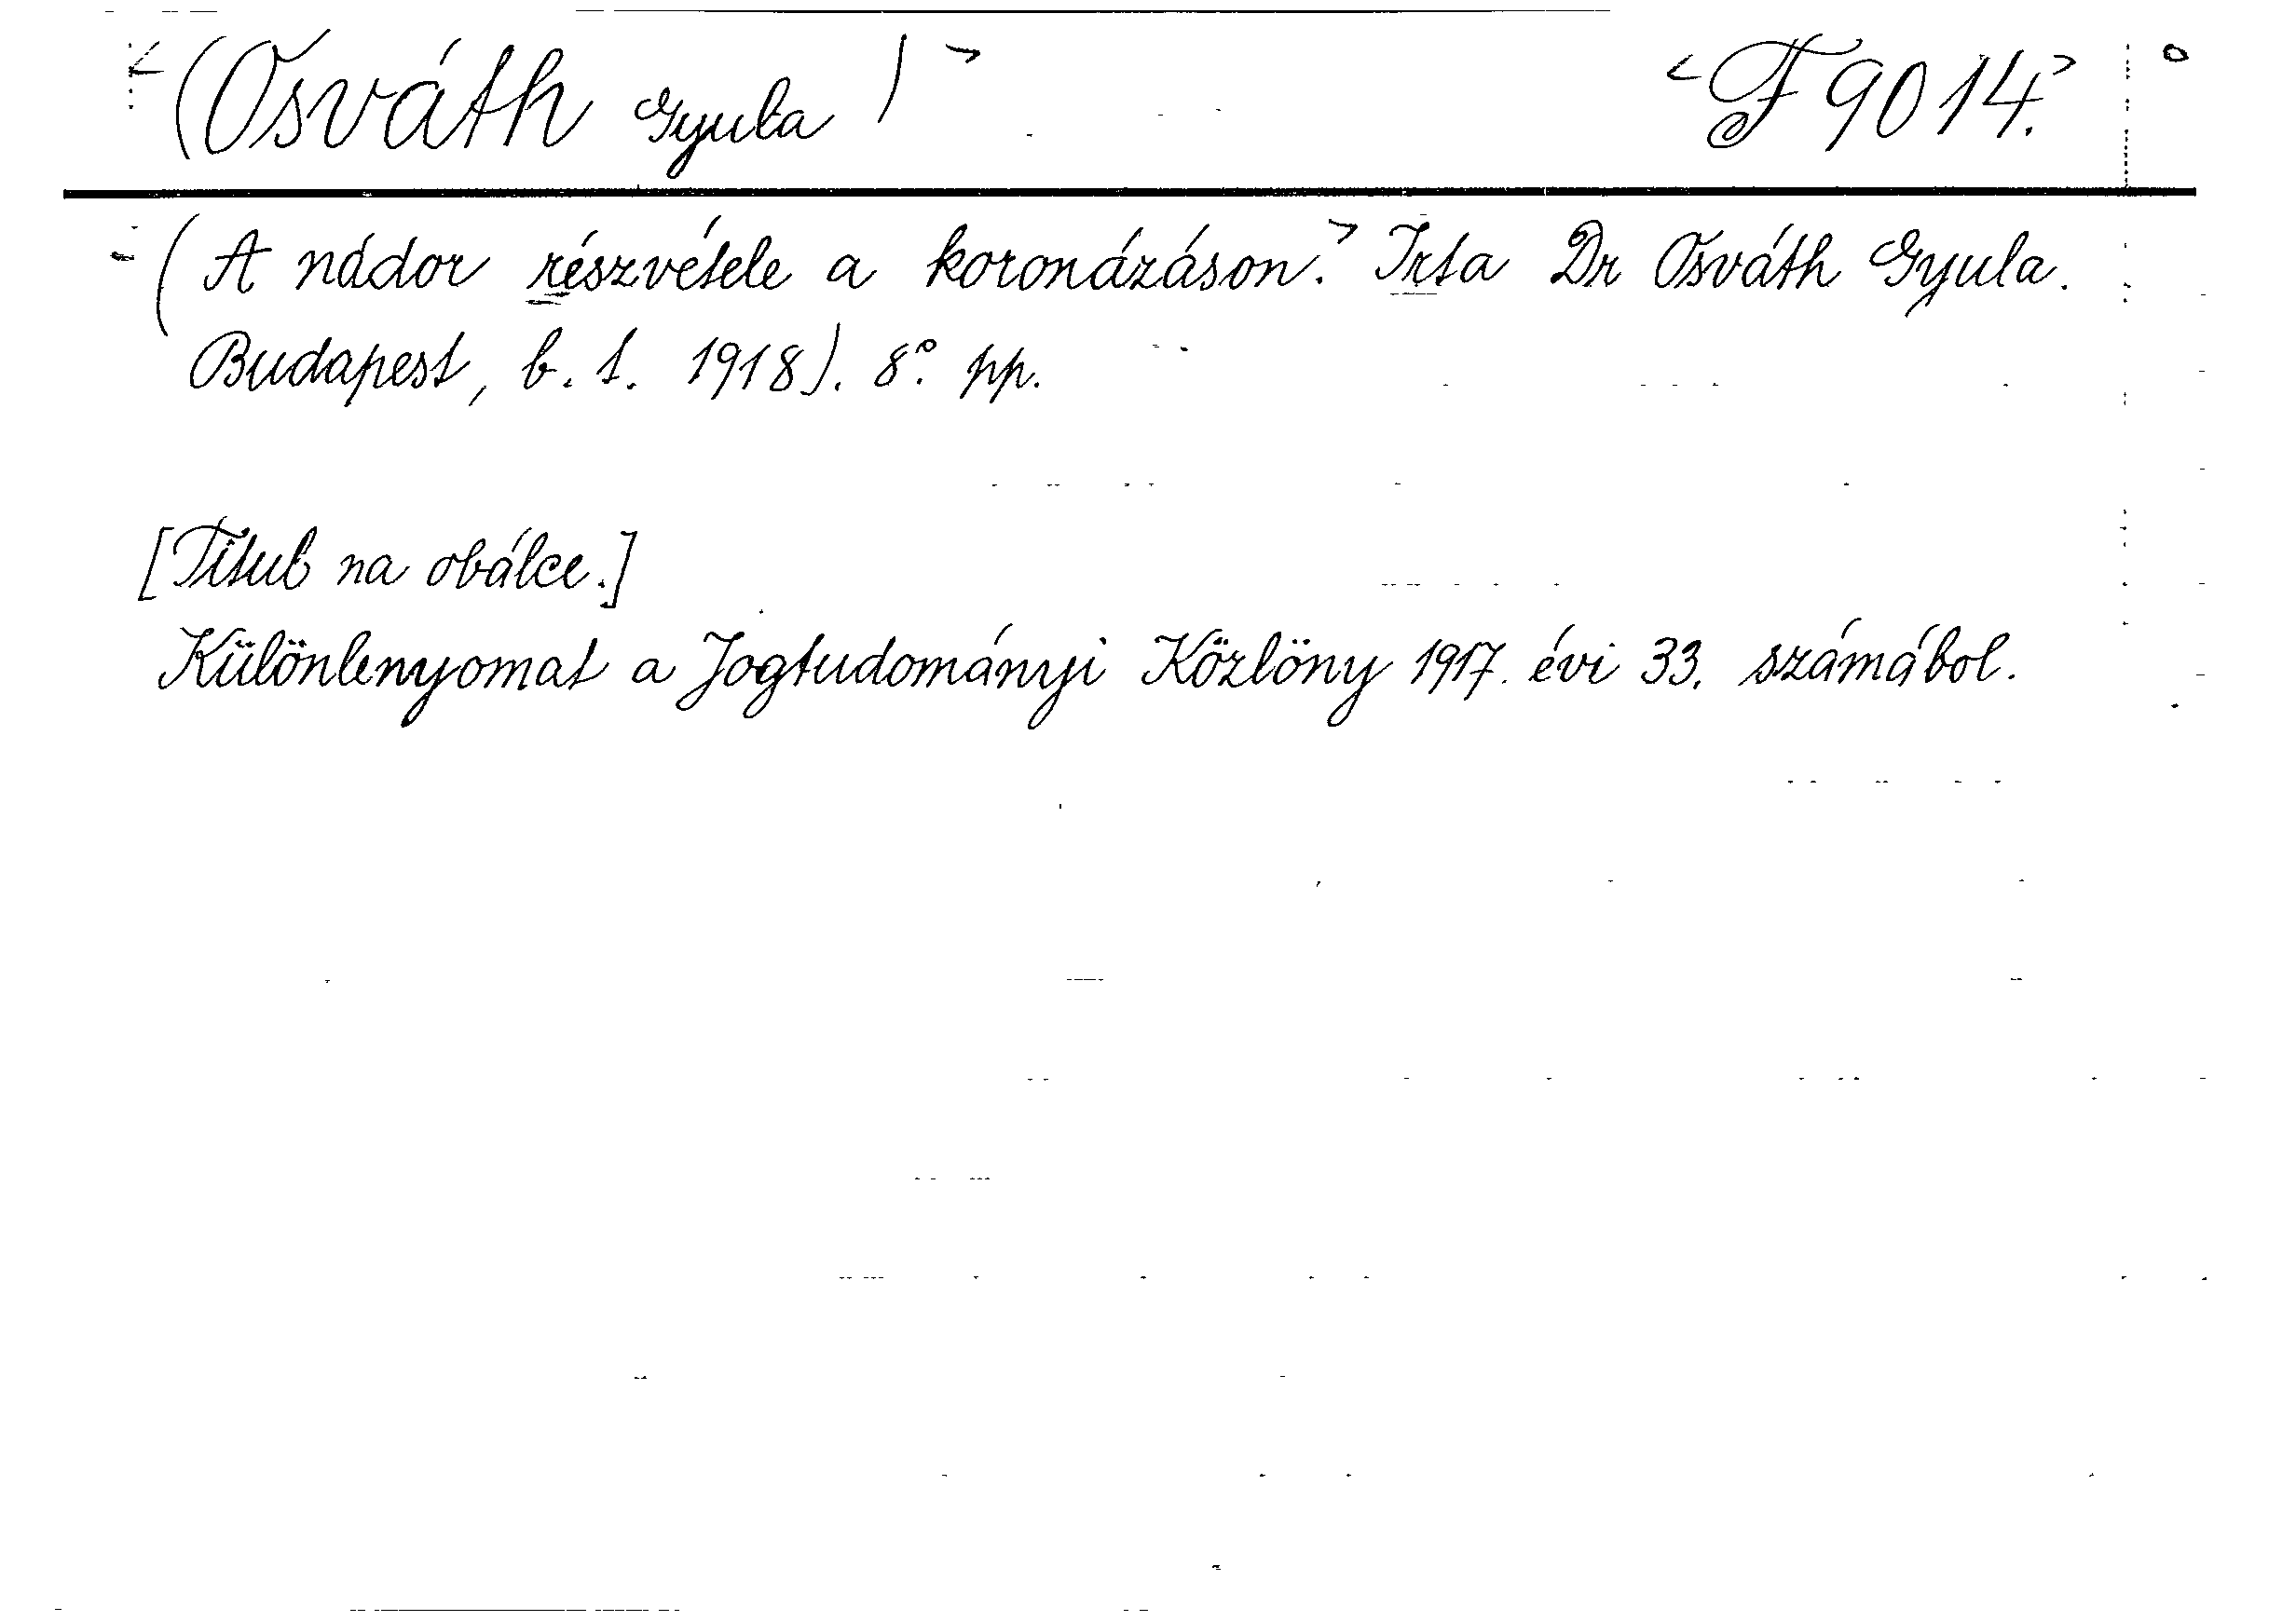 <(Osváth Gyula)> <F 9014.>
(A nádor részvétele a koronázáson.> Irta Dr Osváth Gyula.
Budapest, b. t. 1918). 8° pp.
[Titul na obálce.]
Különlenyomat a Jogtudományi Közlöny 1917. évi 33. számából.